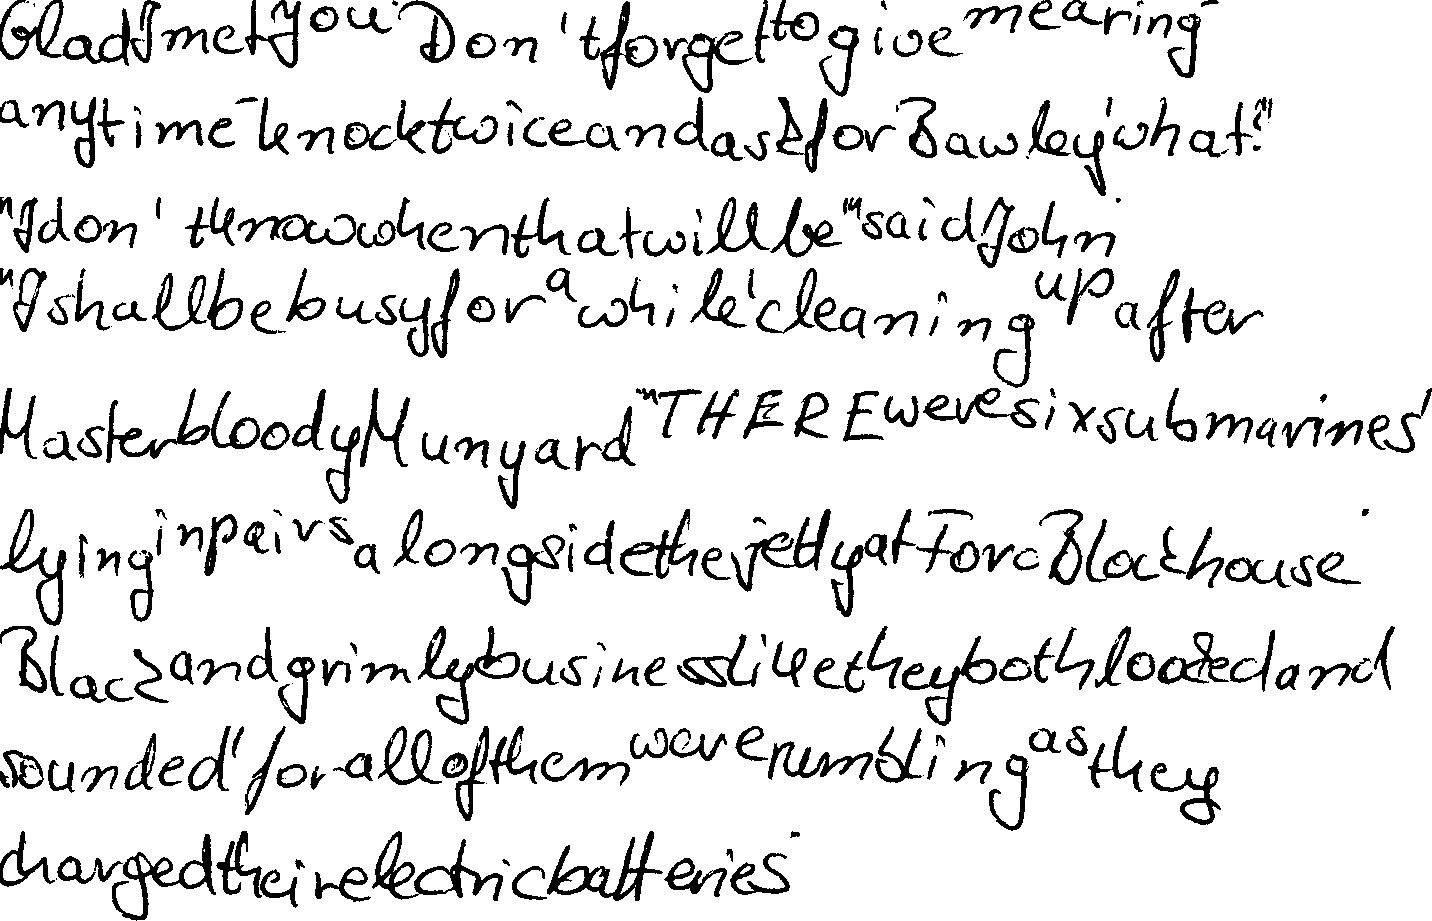 Glad I met you Don't forget to give me a ring
any time - knock twice and ask for Bawley, what."
"I don't know when that will be" said John.
"I shall be busy for a while, cleaning up after
Master bloody Munyard" THERE were six submarines,
lying in pairs alongside the jetty at Fort Blockhouse.
Black and grimly businesslike they both looked and
sounded, for all of them were rumbling as they
charged their electric batteries.